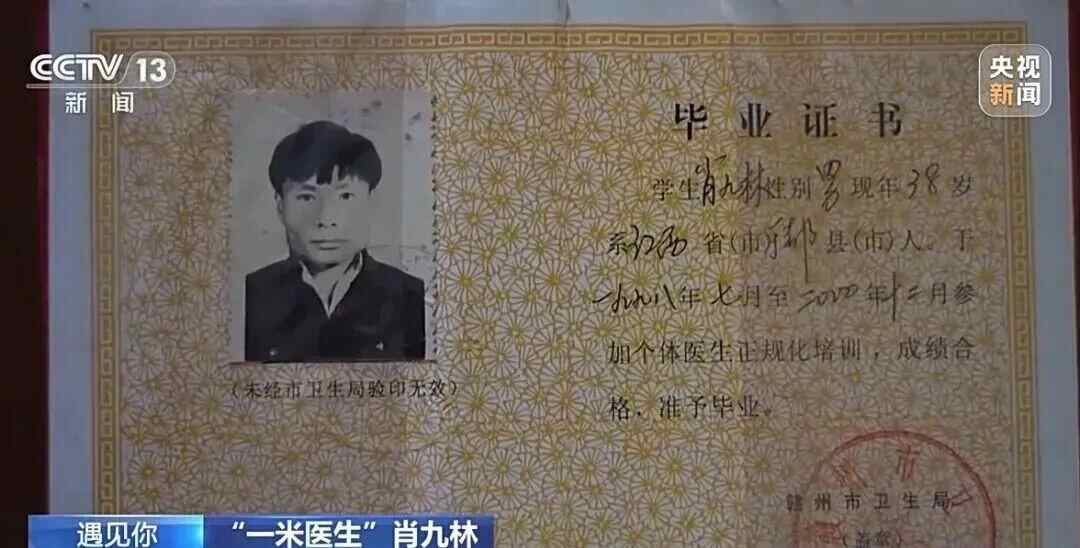 CCTV 13
新闻
央视
新闻
毕业证书
学生肖九林性别男现年38岁
系江西省(市)于都县(市)人。于
一九九八年七月至二000年十二月参
加个体医生正规化培训，成绩合
格，准予毕业。
(未经市卫生局验印无效)
州市
赣州市卫生局
(盖章)
遇见你
“一米医生”肖九林